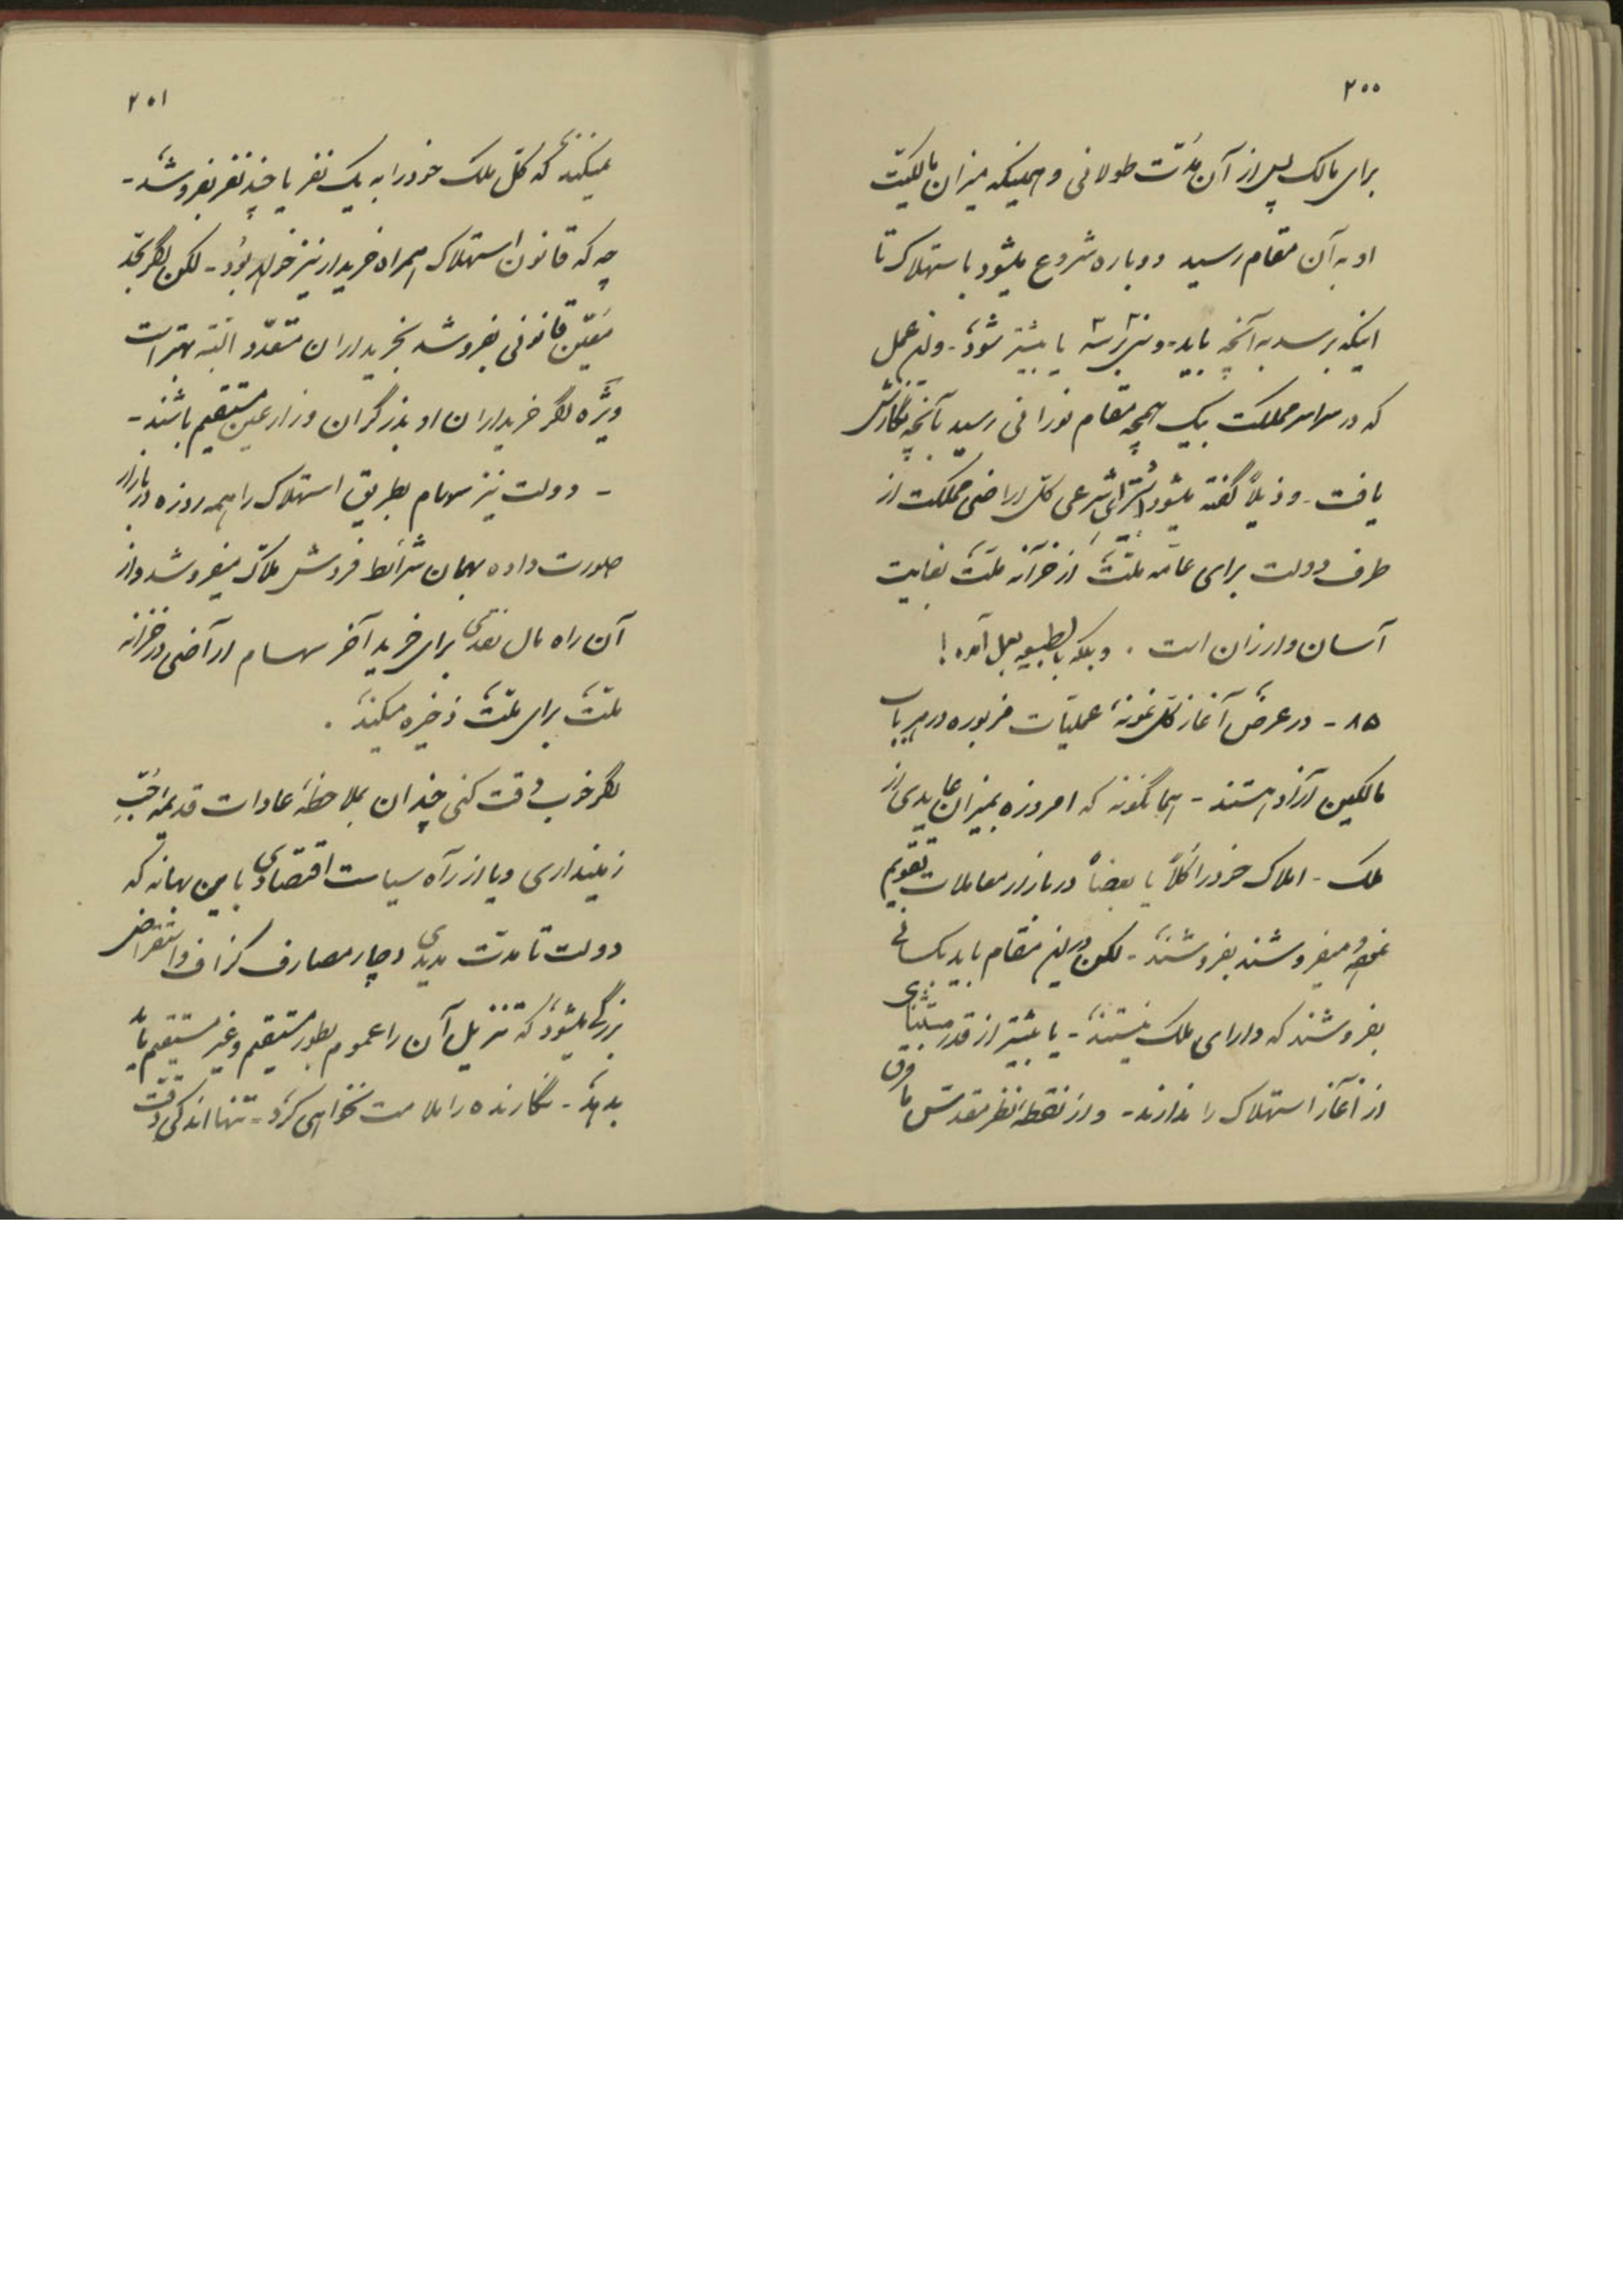 ۲۰۰
برای مالک پس از آن مدّت طولانی و همینکه میزان مالکیّت
او به آن مقام رسید دوباره شروع میشود باستهلاک تا
اینکه برسد به آنچه باید - و نیز ۳ یا بیشتر شود - و این عمل
که در سراسر مملکت بیک همچه مقام نورانی رسید بآنچه نگارش
یافت - و ذیلاً گفته میشود اشترای شرعی کلّ اراضی مملکت از
طرف دولت برای عامّه ملّت از خزانه ملّت بغایت
آسان و ارزان است . و بلکه بالطبیعه بعمل آمده !
۸۵ - در عرض آغاز کلّ نمونهٔ عملیّات مزبوره در هر باب
مالکین آزاد هستند - همانگونه که امروزه بمیزان عایدی از
ملک - املاک خود را کلاً یا بعضاً در بازار معاملات تقویم
نموده میفروشند بفروشند - لکن در این مقام باید بکسانی
بفروشند که دارای ملک نیستند - یا بیشتر از قدر مستثنای
از آغاز استهلاک را ندارند - و از نقطه نظر مقدّس ما فرق
۲۰۱
نمیکند که کلّ ملک خود را به یک نفر یا چند نفر بفروشد -
چه که قانون استهلاک همراه خریدار نیز خواهد بود - لکن اگر بحدّ
معیّن قانونی بفروشد بخریداران متعدّد البته بهتر است
ویژه اگر خریداران او بذرگران و زارعین مستقیم باشند -
- دولت نیز سهام بطریق استهلاک را همه روزه در بازار
صورت داده بهمان شرائط فروش ملاّک میفروشد و از
آن راه مال نقدی برای خرید آخر سهام اراضی در خزانه
ملّت برای ملّت ذخیره میکند .
اگر خوب دقت کنی چندان بملاحظهٔ عادات قدیمه حُبّ
زمینداری و یا از راه سیاست اقتصادی باین بهانه که
دولت تا مدّت مدیدی دچار مصارف گزاف و استقراض
بزرگی میشود که تنزیل آن را عموم بطور مستقیم و غیر مستقیم باید
بدهند - نگارنده را ملامت نخواهی کرد - تنها اندکی دقّت